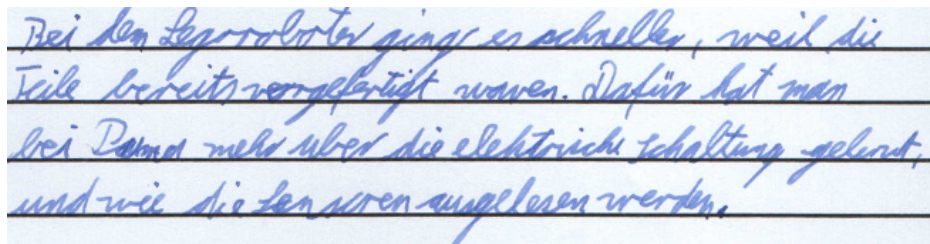 Bei dem Legoroboter ging es schneller, weil die
Teile bereits vorgefertigt waren. Dafür hat man
bei mehr über die elektrische Schaltung gelernt,
und wie die Sensoren ausgelesen werden.